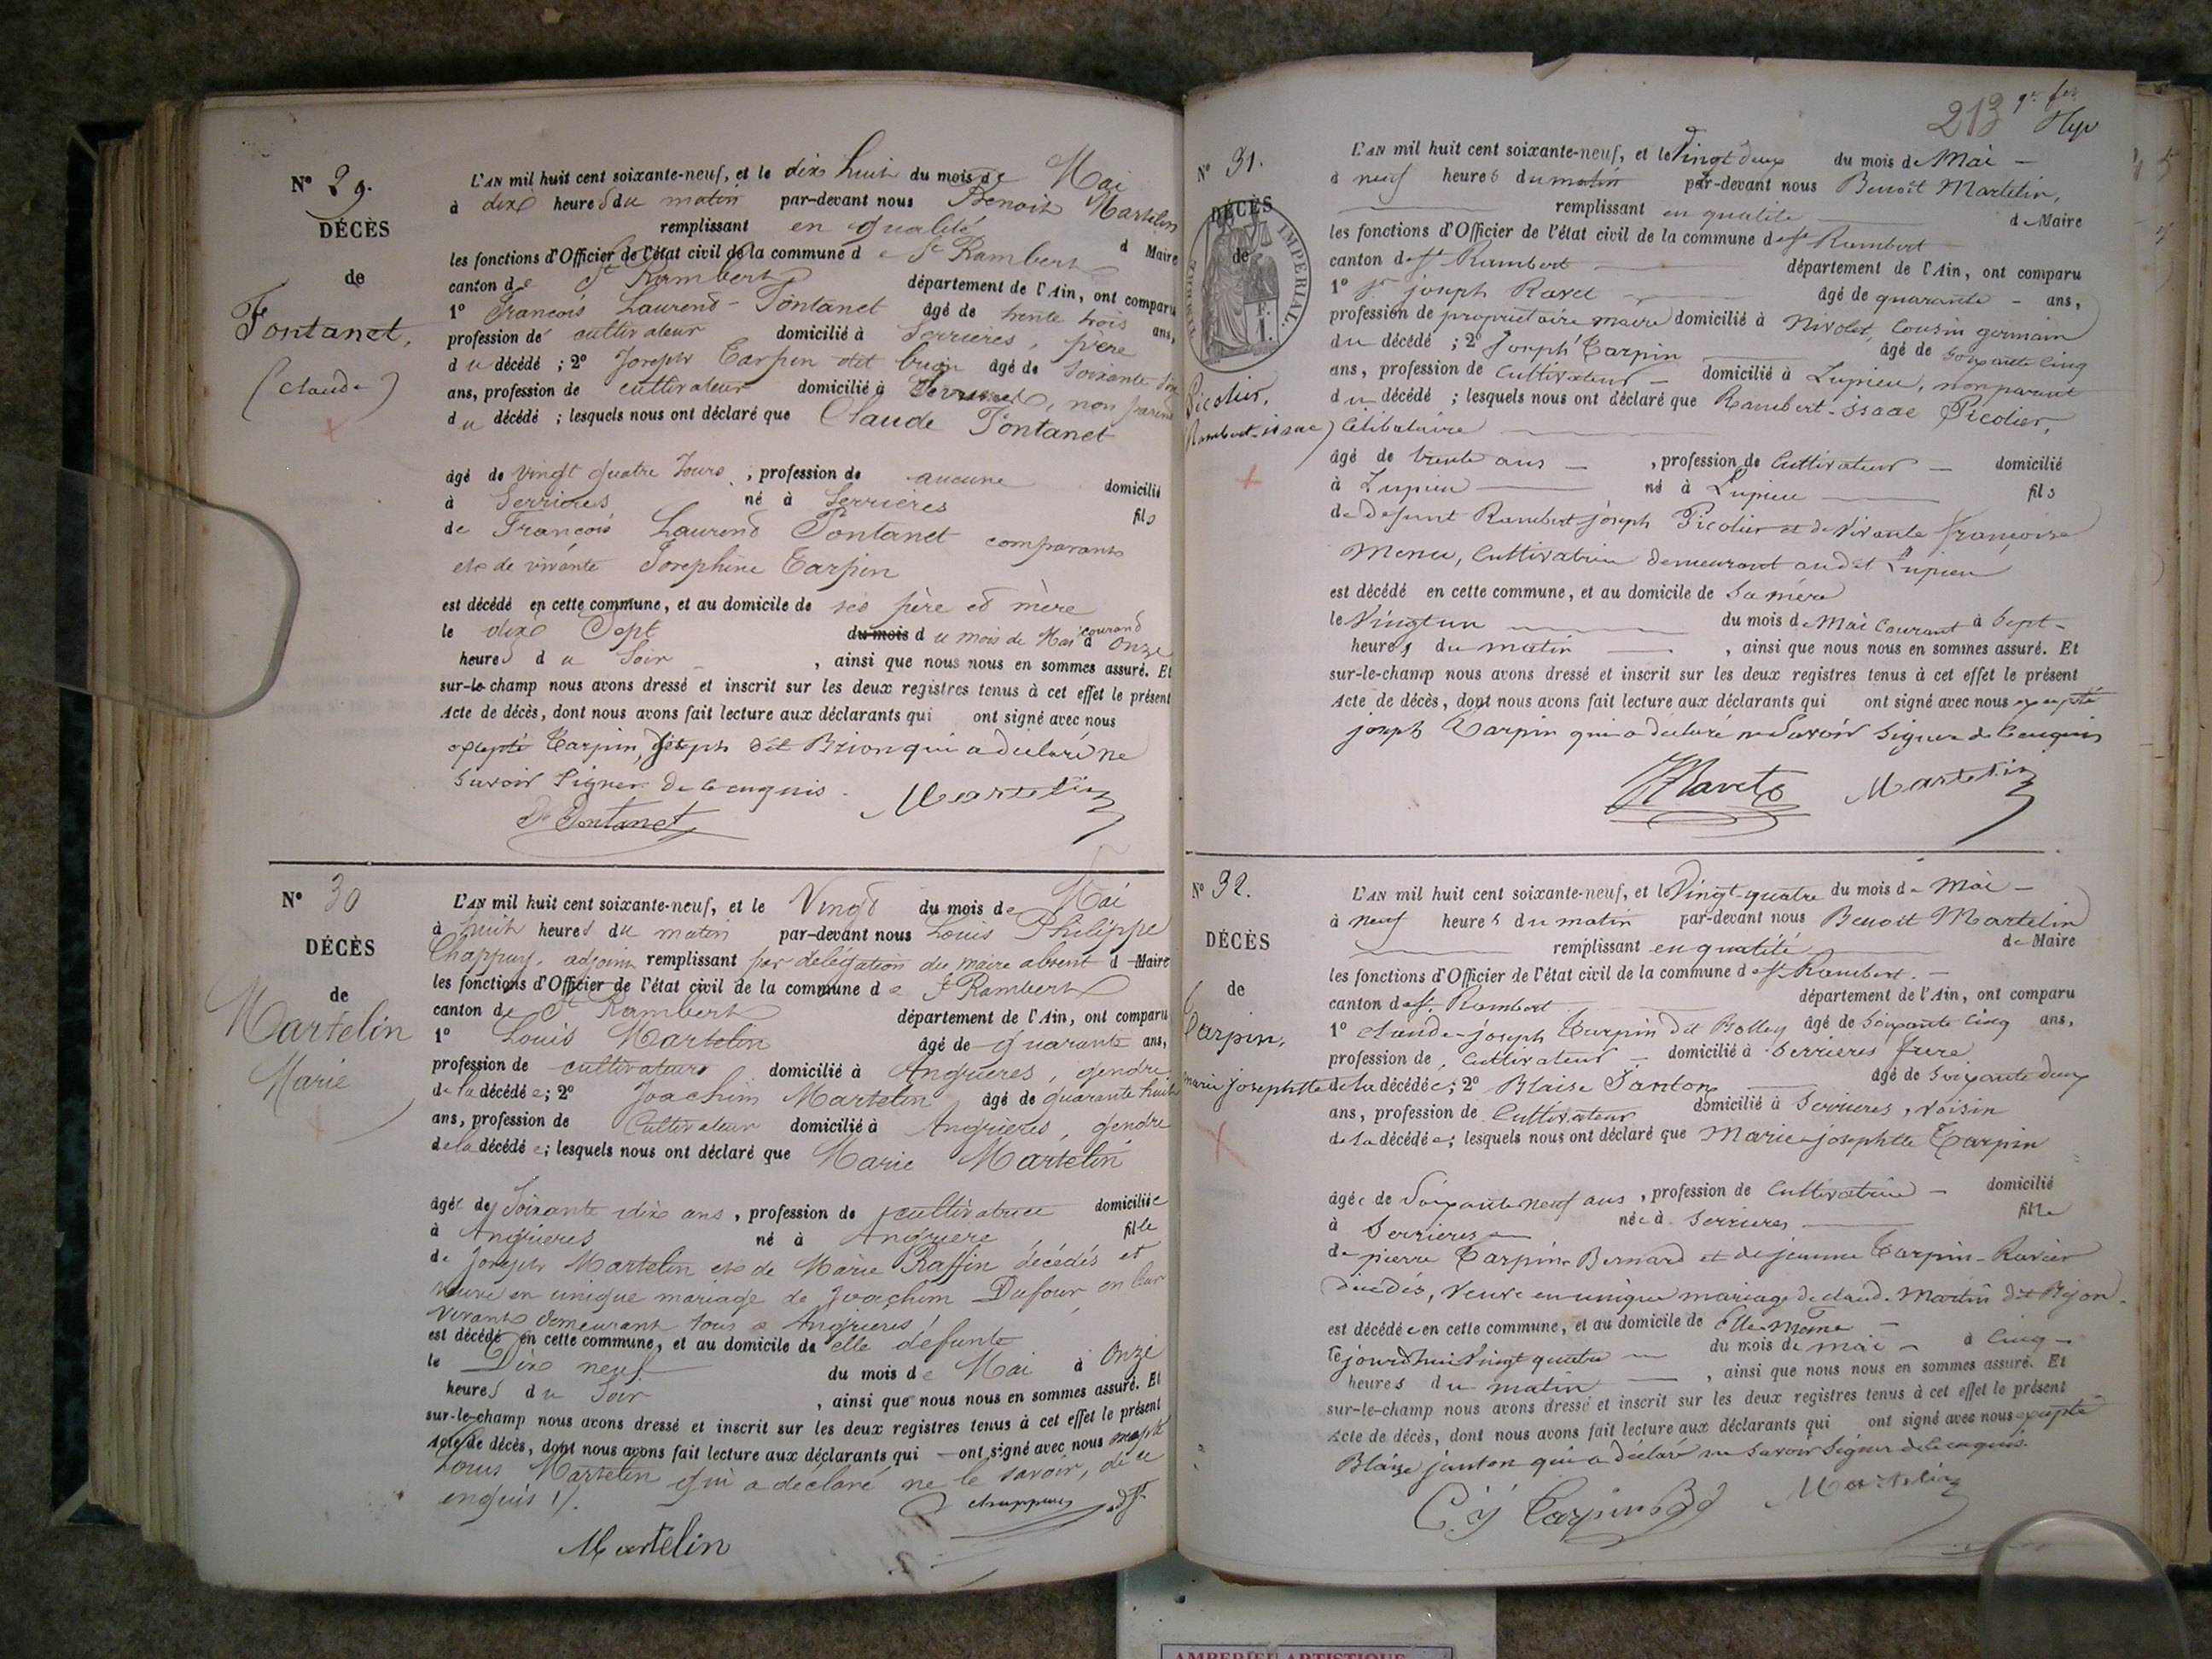 N° 29.
DÉCÈS
de
Fontanet,
(Claude)
L'AN mil huit cent soixante-neuf, et le dix huit du mois de Mai
à dix heures du matin par-devant nous Benoit Martelin
remplissant en qualité de Maire
les fonctions d'Officier de l'état civil de la commune de St Rambert
canton de St Rambert département de l'Ain, ont comparu
1° François Laurend Fontanet âgé de trente trois ans,
profession de cultivateur domicilié à Serrières, père
du décédé ; 2° Joseph Tarpin dit âgé de soixante
ans, profession de cultivateur domicilié à Serrieres, non parent
du décédé ; lesquels nous ont déclaré que Claude Fontanet
âgé de vingt quatre Jours, profession de aucune domicilié
à Serrieres né à Serrières fils
de François Laurend Fontanet comparant
et de vivante Josephine Tarpin
est décédé en cette commune, et au domicile de ses père et mère
le dix Sept du mois du mois de Mai courand à onze
heures du Soir, ainsi que nous nous en sommes assuré. Et
sur-le-champ nous avons dressé et inscrit sur les deux registres tenus à cet effet le présent
Acte de décès, dont nous avons fait lecture aux déclarants qui ont signé avec nous
excepté Tarpin Joseph dit Brion qui a déclaré ne
savoir signer de ce enquis.
Fontanet Martelin
N° 30
DÉCÈS
de
Martelin
Marie
L'AN mil huit cent soixante-neuf, et le Vingt du mois de Mai
à huit heures du matin par-devant nous Louis Philippe
Chappuy, adjoint remplissant par délégation du maire absent d Maire
les fonctions d'Officier de l'état civil de la commune de St Rambert
canton de St Rambert département de l'Ain, ont comparu
1° Louis Martelin âgé de quarante ans,
profession de cultivateur domicilié à Angrieres, gendre
de la décédée; 2° Joachim Martelin âgé de quarante huit
ans, profession de Cultivateur domicilié à Angrieres, gendre
de la décédée; lesquels nous ont déclaré que Marie Martelin
âgée de Soixante dix ans, profession de cultivatrice domiciliée
à Angrieres né à Angriere fille
de Joseph Martelin et de Marie Raffin décédés et
veuve en unique mariage de Joachim Dufour, en leur
vivant demeurant tous a Angrieres
est décédé en cette commune, et au domicile de elle defunte
le Dix neuf du mois de Mai à onze
heures du Soir, ainsi que nous nous en sommes assuré. Et
sur-le-champ nous avons dressé et inscrit sur les deux registres tenus à cet effet le présent
Acte de décès, dont nous avons fait lecture aux déclarants qui ont signé avec nous excepté
Louis Martelin qui a déclaré ne le savoir, de ce
enquis
Chappuy adj.
Martelin
213
N° 31.
DÉCÈS
de
TIMBRE IMPERIAL.
Picolier,
Rambert-isaac)
L'AN mil huit cent soixante-neuf, et le Vingt deux du mois de Mai
à neuf heures du matin par-devant nous Benoit Martelin,
remplissant en qualité de Maire
les fonctions d'Officier de l'état civil de la commune de St Rambert
canton de St Rambert département de l'Ain, ont comparu
1° joseph Ravet âgé de quarante ans,
profession de propriétaire maire domicilié à Nivolet, Cousin germain
du décédé ; 2° Joseph Tarpin âgé de soixante cinq
ans, profession de Cultivateur domicilié à Lupieu, non parent
du décédé ; lesquels nous ont déclaré que Rambert-isaac Picolier,
Célibataire
âgé de trente ans, profession de Cultivateur domicilié
à Lupieu né à Lupieu fils
de defunt Rambert joseph Picolier et de vivante françoise
Menu, Cultivatrice demeurant audit Lupieu
est décédé en cette commune, et au domicile de Sa mère
le Vingt un du mois de Mai Courant à Sept
heures du matin, ainsi que nous nous en sommes assuré. Et
sur-le-champ nous avons dressé et inscrit sur les deux registres tenus à cet effet le présent
Acte de décès, dont nous avons fait lecture aux déclarants qui ont signé avec nous excepté
joseph Tarpin qui a déclaré ne Savoir Signer de ce enquis
Ravet Martelin
N° 32.
DÉCÈS
de
Tarpin,
marie josephtte
L'AN mil huit cent soixante-neuf, et le Vingt-quatre du mois de Mai
à neuf heures du matin par-devant nous Benoit Martelin
remplissant en qualité de Maire
les fonctions d'Officier de l'état civil de la commune de St Rambert.
canton de St Rambert département de l'Ain, ont comparu
1° Claude-joseph Tarpin dit Bolley âgé de soixante cinq ans,
profession de Cultivateur domicilié à Serrieres frere
de la décédée; 2° Blaise Janton âgé de soixante deux
ans, profession de Cultivateur domicilié à Serrieres, voisin
de la décédée; lesquels nous ont déclaré que Marie-josephtte Tarpin
âgée de Soixante neuf ans, profession de Cultivatrice domicilié
à Serrieres née à Serrieres fille
de pierre Tarpin Bernard et de jeanne Tarpin-Ravier
décédés, Veuve en unique mariage de claude Martin dit Bijon
est décédée en cette commune, et au domicile de Elle Même
le jourd'hui Vingt quatre du mois de mai à Cinq
heures du matin, ainsi que nous nous en sommes assuré. Et
sur-le-champ nous avons dressé et inscrit sur les deux registres tenus à cet effet le présent
Acte de décès, dont nous avons fait lecture aux déclarants qui ont signé avec nous excepté
Blaise janton qui a déclaré ne savoir Signer de ce enquis.
C. j Tarpin Martelin
AMBERIEU ARTISTIQUE